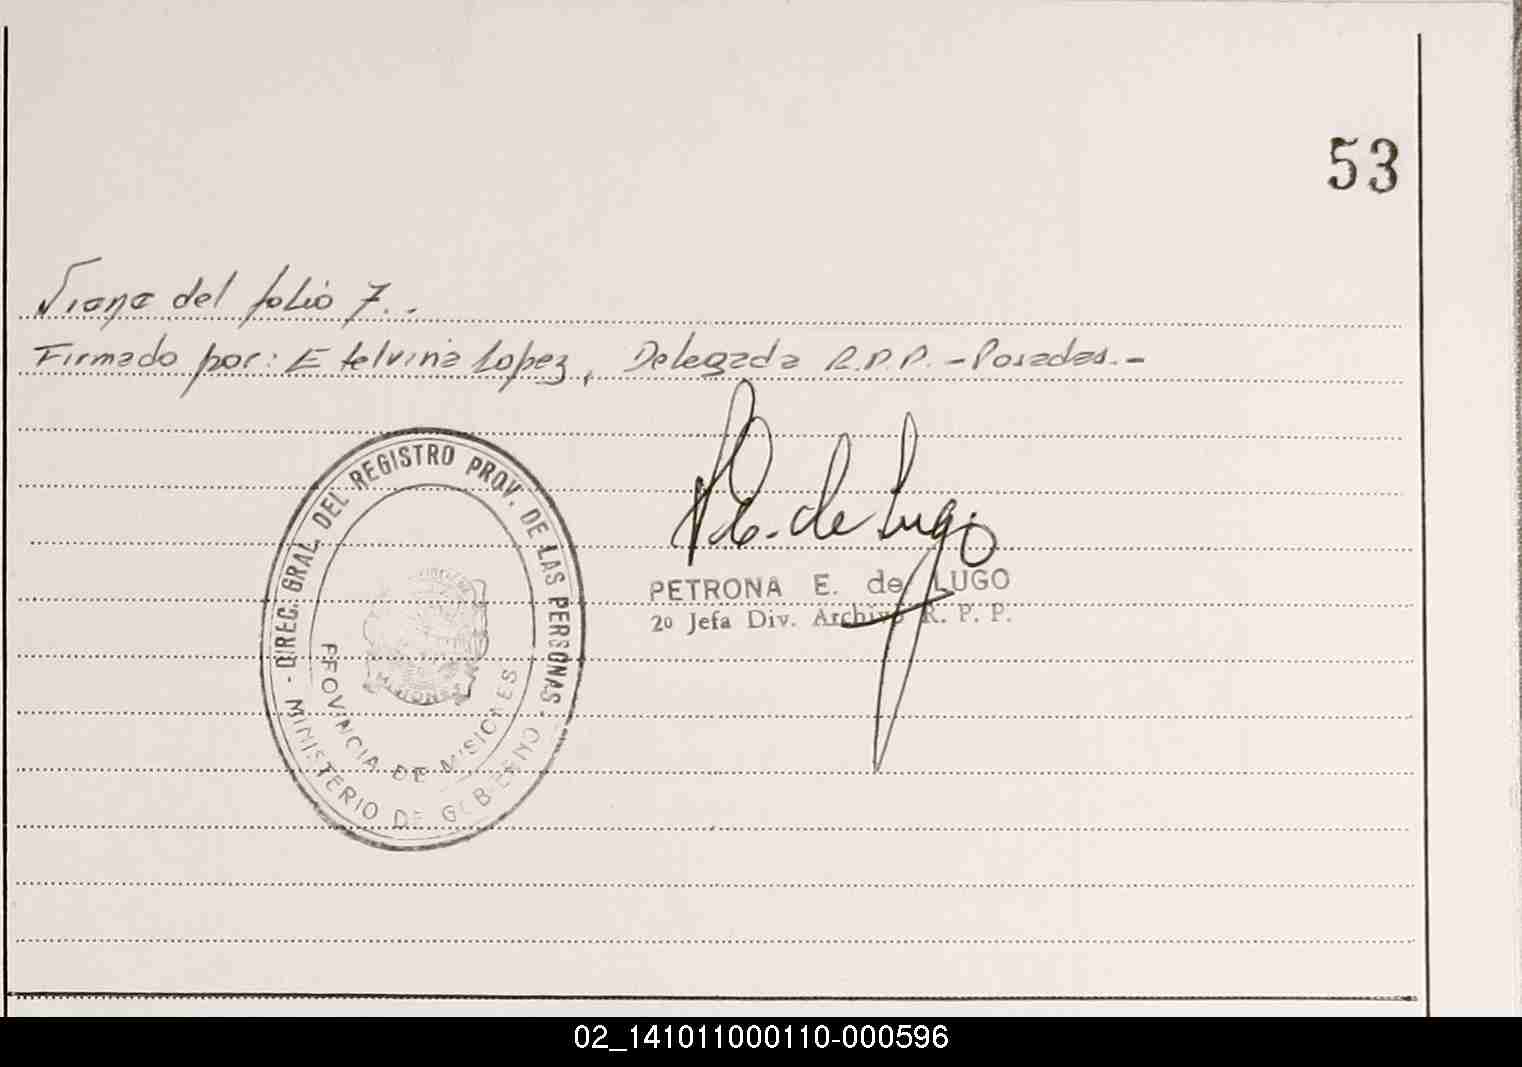 53
Viene del folio 7..
Firmado por: Etelvina Lopez, Delegada R.P.P. - Posadas.-
DIREC. GRAL. DEL REGISTRO PROV. DE LAS PERSONAS -
MINISTERIO DE GOBIERNO
PROVINCIA DE MISIONES
MISIONES
P. E. de Lugo
PETRONA E. de LUGO
2º Jefa Div. Archivo R. P. P.
02_141011000110-000596